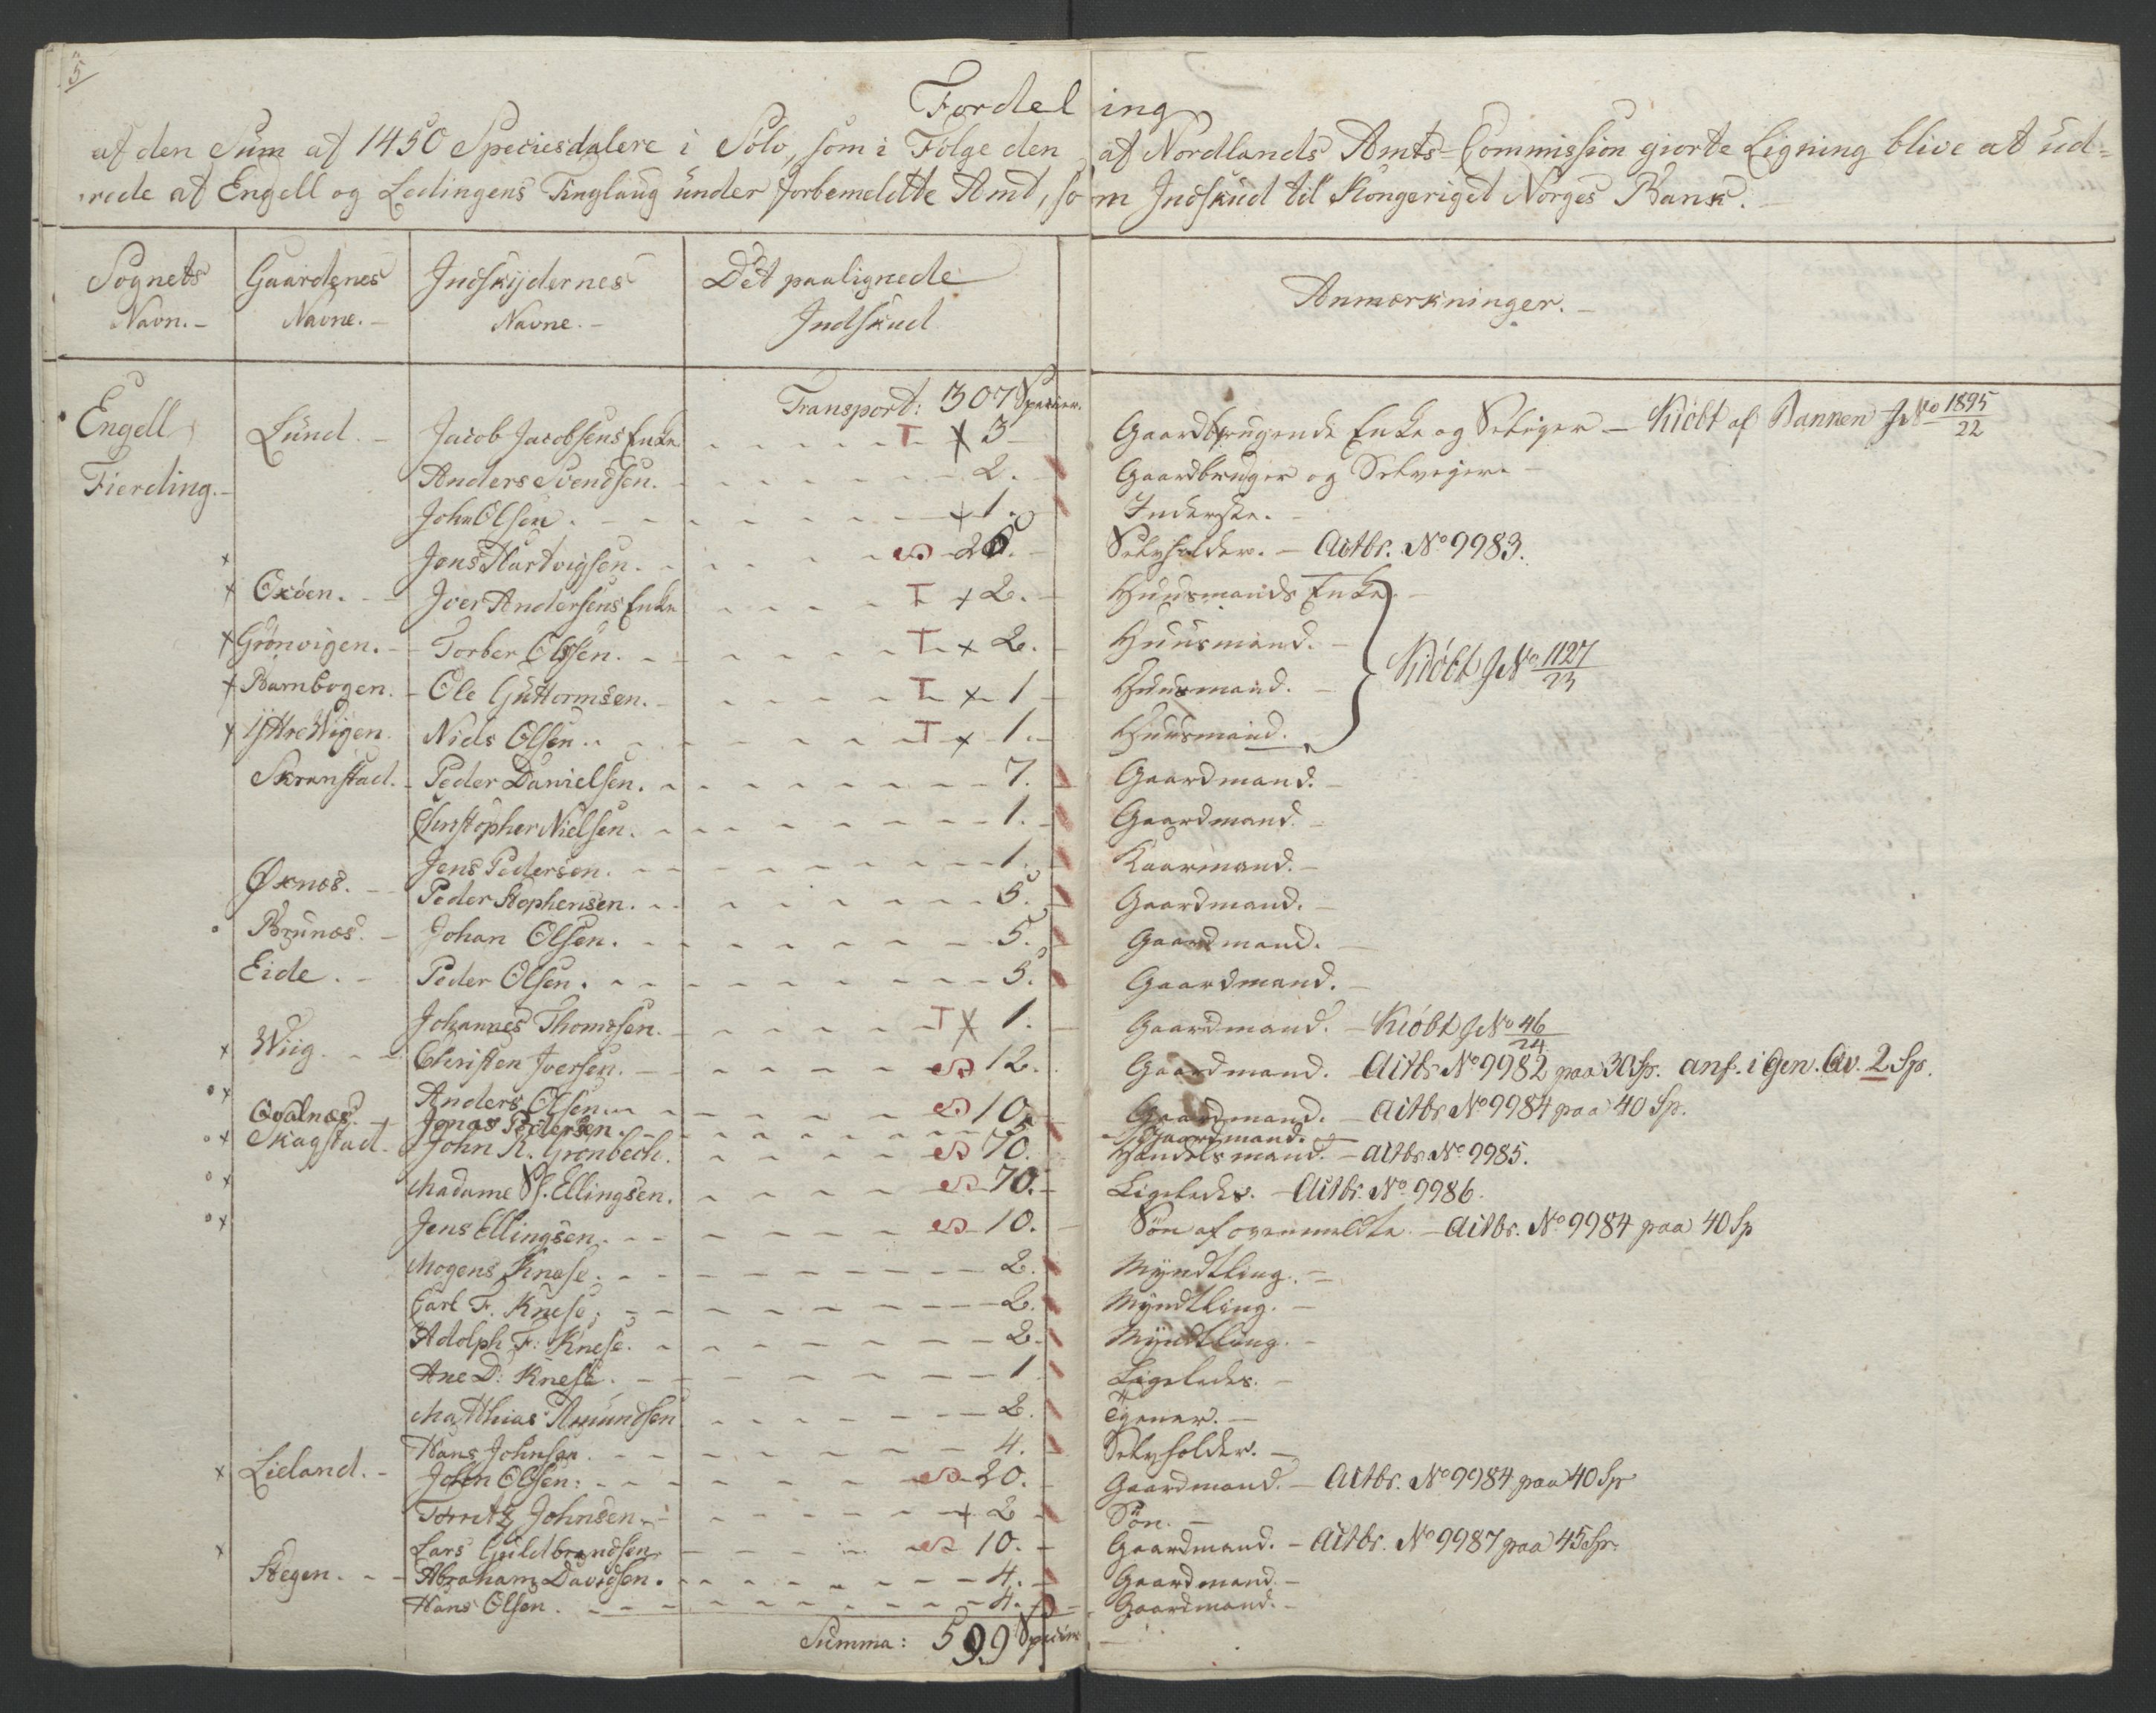 5
Fordeling
af den Sum af 1450 Speciesdalere i Sølv, som i Følge den af Nordlands Amts-Commission giorte Ligning blive at ud-
rede af Engell og Lødingens Tinglaug under forbemeldte Amt, som Indskud til Kongeriget Norges Bank.
Sognets Navn. Gaardenes Navne. Indskydernes Navne. Det paalignede Indskud Anmærkninger.
Transport: 307 Specier.
Engell Lund. Jacob Jacobsens Enke T X 3 Gaardbrugende Enke og Seleyer Kiøbt af Banken JNo 1895/22
Fierding. Anders Svendsen. 2. Gaardbruger og Selveyer.
John Olsen. + 1. Inderste.
x Jens Hartvigsen. 20. Selvholder. Actbr. No 9983.
x Oxøen. Iver Andersens Enke T + 2. Huusmands Enke.
x Grønvigen. Torber Olssen. T x 2. Huusmand. Kiøbt JNo 1127/23
x Barnbogen. Ole Guttormsen. T x 1 Huusmand.
x Ÿttre Wigen. Niels Olsen. T x 1. Huusmand.
Skranstad. Peder Danielsen. 7. Gaardmand.
Christopher Nielsen. 1. Gaardmand.
Jens Pedersen. 1. Kaarmand.
Øxnæs. Peder Stephensen. 5. Gaardmand.
Brunæs. Johan Olsen. 5. Gaardmand.
Eide. Peder Olsen. 5. Gaardmand.
Johannes Thomesen. T X 1. Gaardmand. Kiøbt JNo 46/24
x Wiig. Christen Iversen. 12. Gaardmand. Actbr No 9982 paa 30 Sp. anf. i Gen. Qv. 2 Sps.
o x Anders Olsen. 10. Gaardmand. Actbr No 9984 paa 40 Sp.
Qvalnæs. Jonas Pedersen. 5. Gaardmand.
o x Skagstad. John R. Grønbech. 70. Handelsmand. Actbr No 9985.
o x Madame Sl. Ellingsen. 70. Ligeledes. Actbr. No 9986.
o x Jens Ellingsen. 10. Søn af ovenmeldte. Actbr. No 9984 paa 40 Sp
Mogens Knese. 2. Myndtling.
Carl F. Knese. 2. Myndtling.
Adolph F: Knese. 2. Myndtling.
Ane D: Knese. 1 Ligeledes.
Matthias Amundsen 2. Tjener.
Hans Johnsen. 4. Selvholder.
x Lieland. John Olsen. 20. Gaardmand. Actbr. No 9984 paa 40 Sp
Johnsen. + 2 Søn.
x Lars Guldbrandsen 10. Gaardmand. Actbr. No 9987 paa 45 Sp.
Stegen. Abraham Davidsen. 4. Gaardmand.
Hans Olsen. 4. Gaardmand.
Summa: 599 Specier